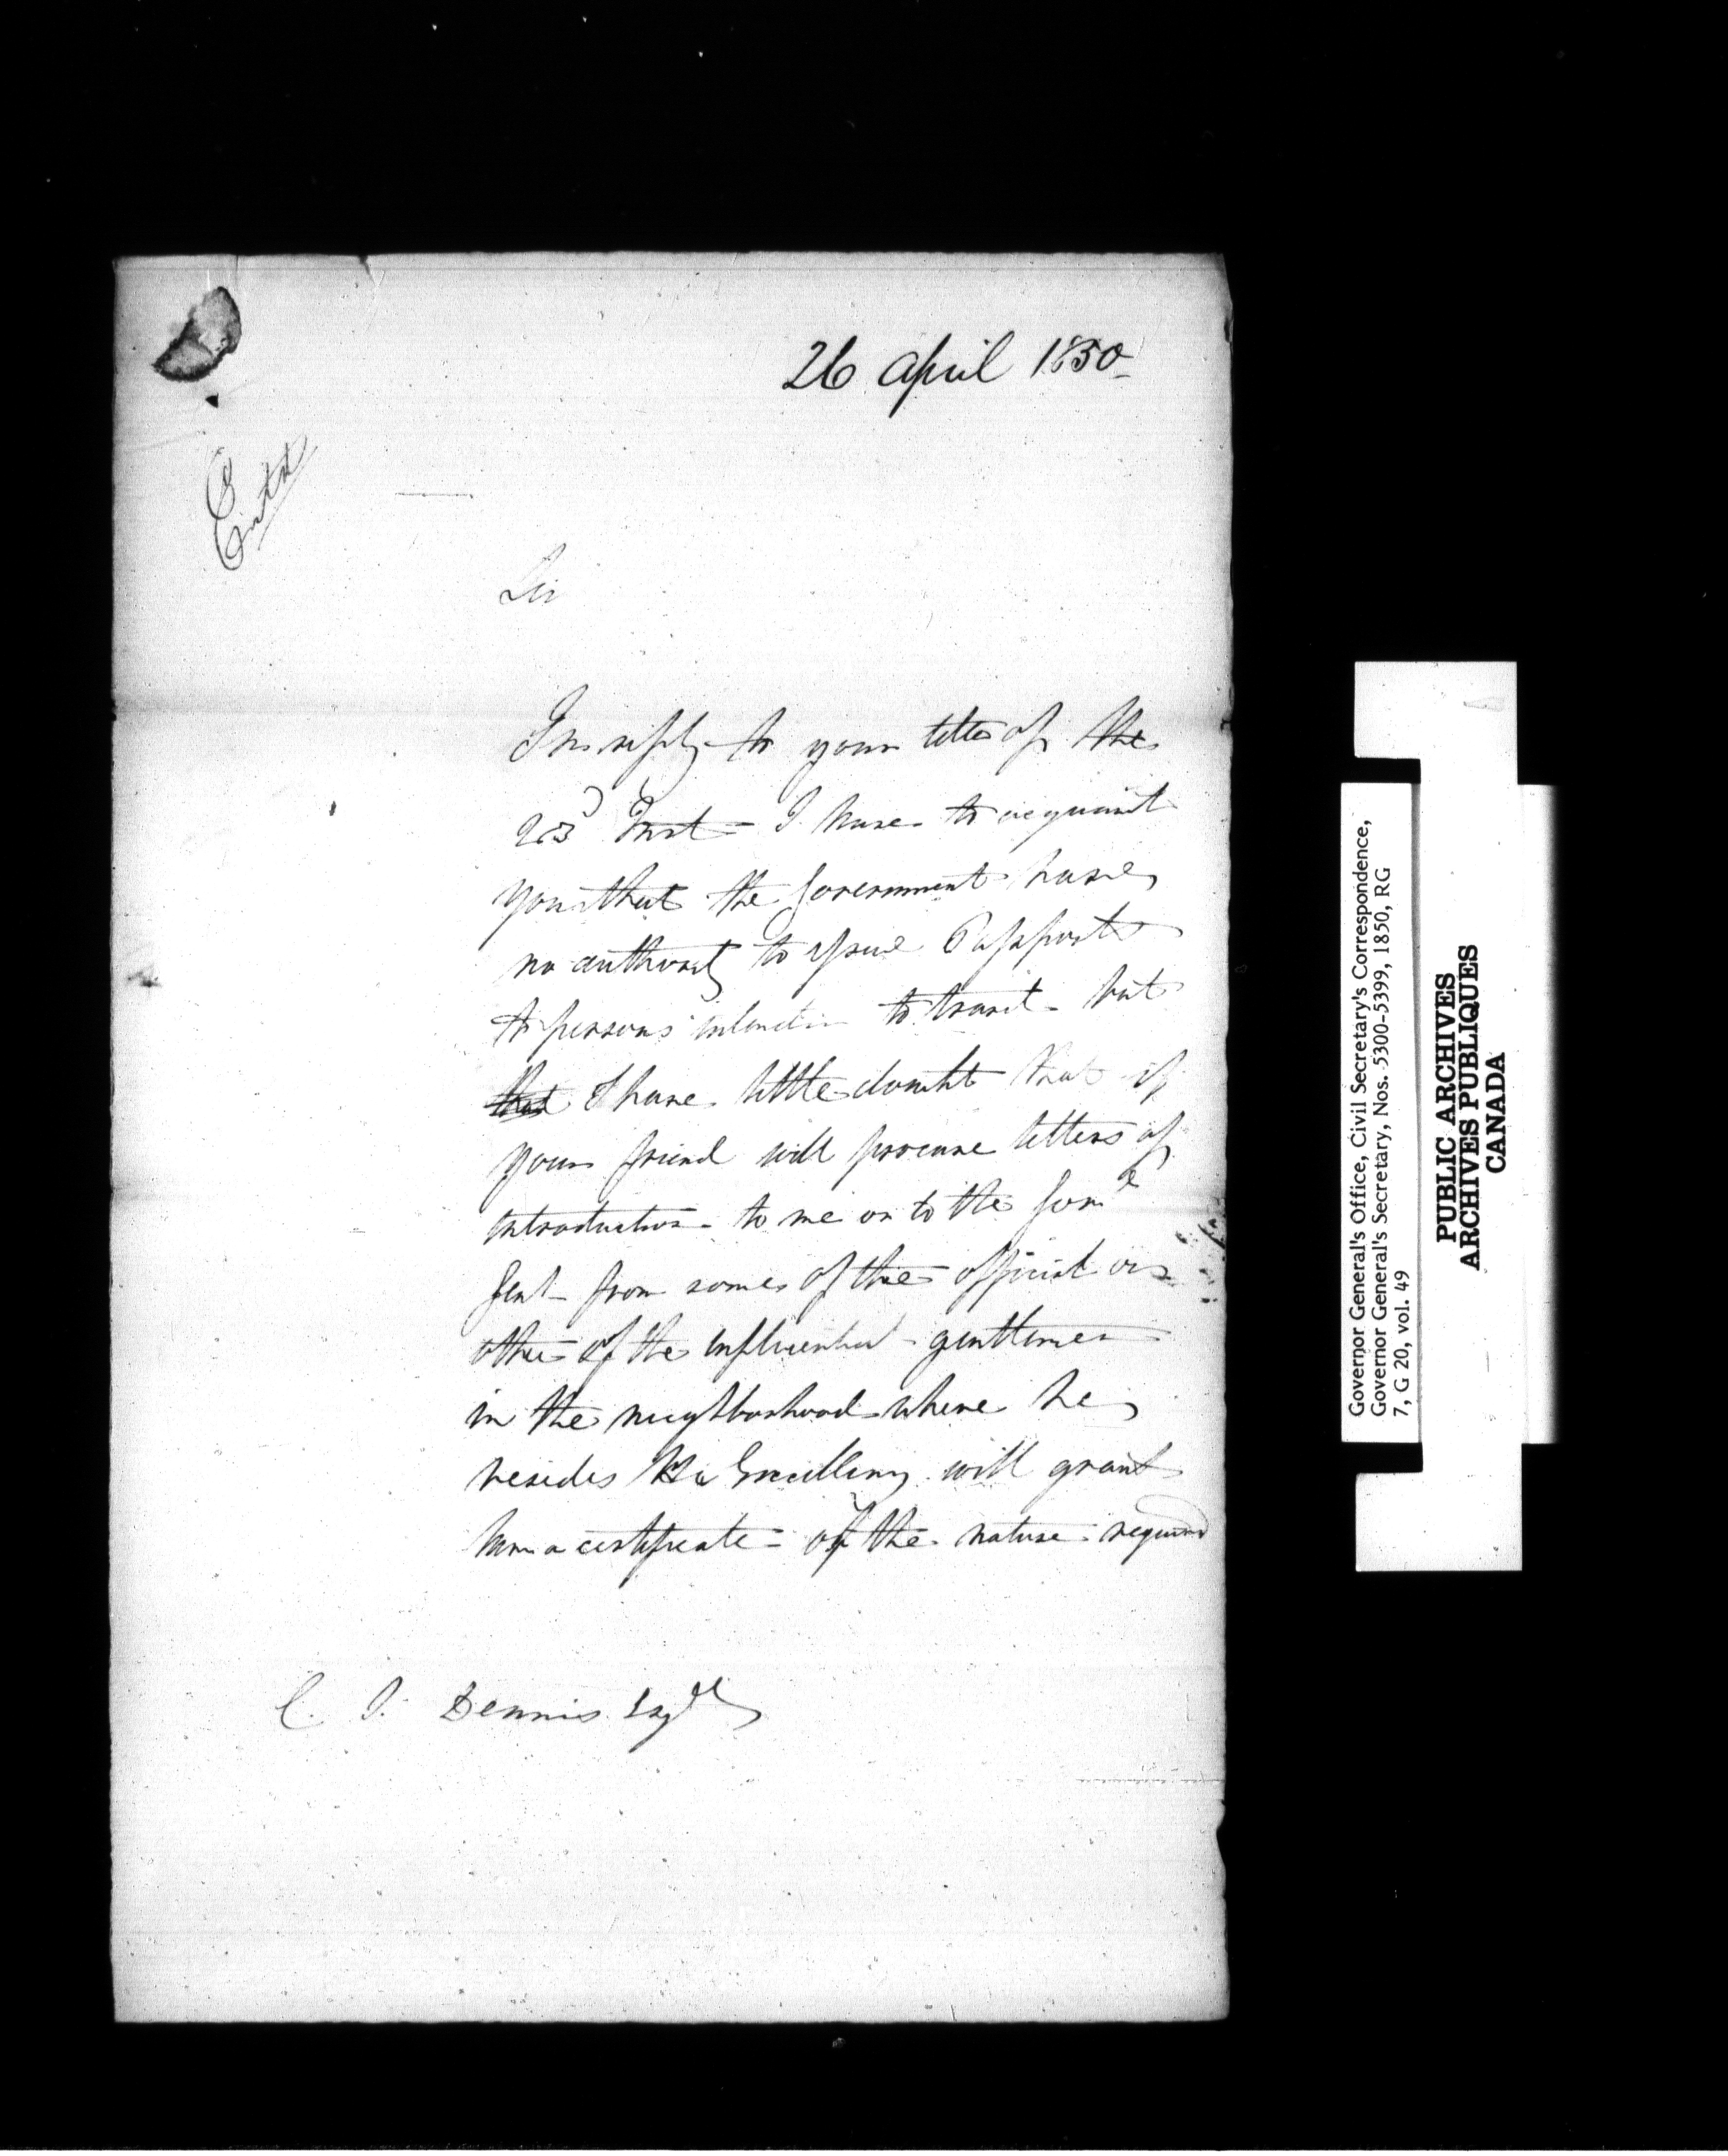 26 April 1850
Entd
Sir
In reply to your letter of the
23d Inst - I have to acquaint
you that the Government have
no authority to issue Passports
to persons intending to travel - but
that I have little doubt that if
your friend will procure letters of
introduction - to me or to the Govr
Genl - from some of the official or
other of the influential gentlemen
in the neighborhood where he
resides His Excellency will grant
him a certificate - of the nature required
C. J. Dennis Esqre
Governor General's Office, Civil Secretary's Correspondence,
Governor General's Secretary, Nos. 5300-5399, 1850, RG
7, G 20, vol. 49
PUBLIC ARCHIVES
ARCHIVES PUBLIQUES
CANADA